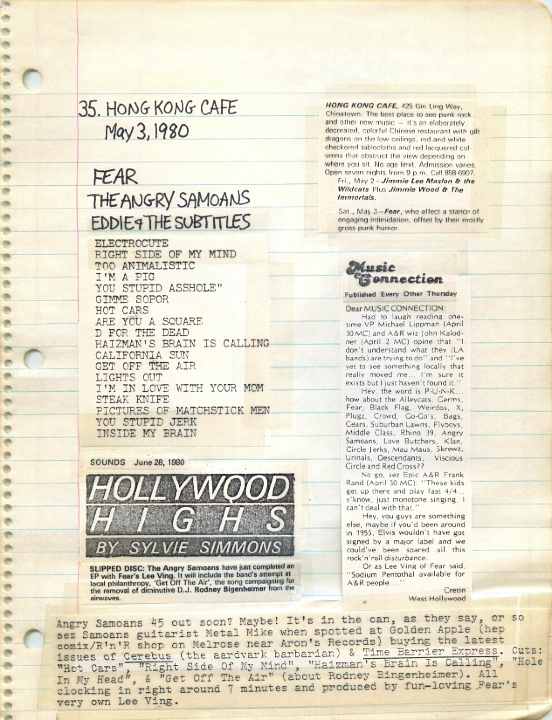 35. HONG KONG CAFE
May 3, 1980
FEAR
THE ANGRY SAMOANS
EDDIE & THE SUBTITLES
ELECTROCUTE
RIGHT SIDE OF MY MIND
TOO ANIMALISTIC
I'M A PIG
YOU STUPID ASSHOLE"
GIMME SOPOR
HOT CARS
ARE YOU A SQUARE
D FOR THE DEAD
HAIZMAN'S BRAIN IS CALLING
CALIFORNIA SUN
GET OFF THE AIR
LIGHTS OUT
I'M IN LOVE WITH YOUR MOM
STEAK KNIFE
PICTURES OF MATCHSTICK MEN
YOU STUPID JERK
INSIDE MY BRAIN
SOUNDS June 28, 1980
HOLLYWOOD
HIGHS
BY SYLVIE SIMMONS
SLIPPED DISC: The Angry Samoans have just completed an
EP with Fear's Lee Ving. It will include the band's attempt at
local philanthropy, 'Get Off The Air', the song campaigning for
the removal of diminutive D.J. Rodney Bigenheimer from the
airwaves.
HONG KONG CAFE, 425 Gin Ling Way,
Chinatown. The best place to see punk rock
and other new music — it's an elaborately
decorated, colorful Chinese restaurant with gilt
dragons on the low ceilings, red and white
checkered tablecloths and red lacquered col-
umns that obstruct the view depending on
where you sit. No age limit. Admission varies.
Open seven nights from 9 p.m. Call 858-6907.
Fri., May 2—Jimmie Lee Maslon & the
Wildcats Plus Jimmie Wood & The
Immortals.
Sat., May 3—Fear, who affect a stance of
engaging intimidation, offset by their mostly
gross punk humor.
Music
Connection
Published Every Other Thursday
Dear MUSIC CONNECTION:
Had to laugh reading one-
time VP Michael Lippman (April
30 MC) and A&R wiz John Kalod-
ner (April 2 MC) opine that "I
don't understand what they (LA
bands) are trying to do" and "I've
yet to see something locally that
really moved me... I'm sure it
exists but I just haven't found it."
Hey, the word is P-U-N-K...
how about the Alleycats, Germs,
Fear, Black Flag, Weirdos, X,
Plugz, Crowd, Go-Go's, Bags,
Gears, Suburban Lawns, Flyboys,
Middle Class, Rhino 39, Angry
Samoans, Love Butchers, Klan,
Circle Jerks, Mau Maus, Skrewz,
Urinals, Descendants, Viscious
Circle and Red Cross??
No go, sez Epic A&R Frank
Rand (April 30 MC): "These kids
get up there and play fast 4/4...
y'know, just monotone singing. I
can't deal with that."
Hey, you guys are something
else, maybe if you'd been around
in 1955, Elvis wouldn't have got
signed by a major label and we
could've been spared all this
rock'n'roll disturbance.
Or as Lee Ving of Fear said,
"Sodium Pentothal available for
A&R people...."
Cretin
West Hollywood
Angry Samoans 45 out soon? Maybe! It's in the can, as they say, or so
sez Samoans guitarist Metal Mike when spotted at Golden Apple (hep
comix/R'n'R shop on Melrose near Aron's Records) buying the latest
issues of Cerebus (the aardvark barbarian) & Time Barrier Express. Cuts:
"Hot Cars", "Right Side Of My Mind", "Haizman's Brain Is Calling", "Hole
In My Head", & "Get Off The Air" (about Rodney Bingenheimer). All
clocking in right around 7 minutes and produced by fun-loving Fear's
very own Lee Ving.